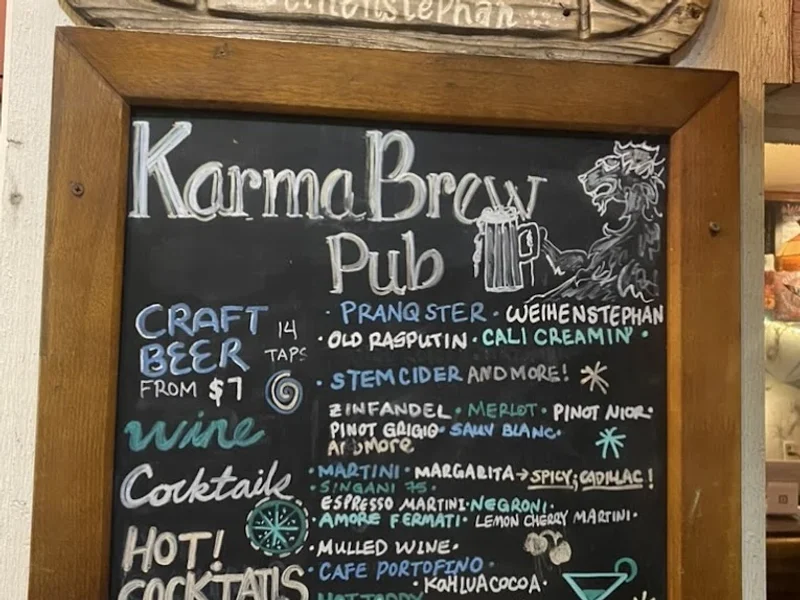 Weihenstephan
Karma Brew
Pub
CRAFT
BEER
14
TAPS
FROM $7
· PRANQSTER · WEIHENSTEPHAN
· OLD RASPUTIN · CALI CREAMIN' ·
· STEM CIDER AND MORE!
wine
ZINFANDEL · MERLOT · PINOT NIOR ·
PINOT GRIGIO · SAUV BLANC ·
AND MORE
Cocktails
· MARTINI · MARGARITA → SPICY; CADILLAC!
· SINGANI 75 ·
ESPRESSO MARTINI · NEGRONI ·
· AMORE FERMATI · LEMON CHERRY MARTINI ·
HOT!
COCKTAILS
· MULLED WINE ·
· CAFE PORTOFINO ·
· KAHLUA COCOA ·
HOT TODDY